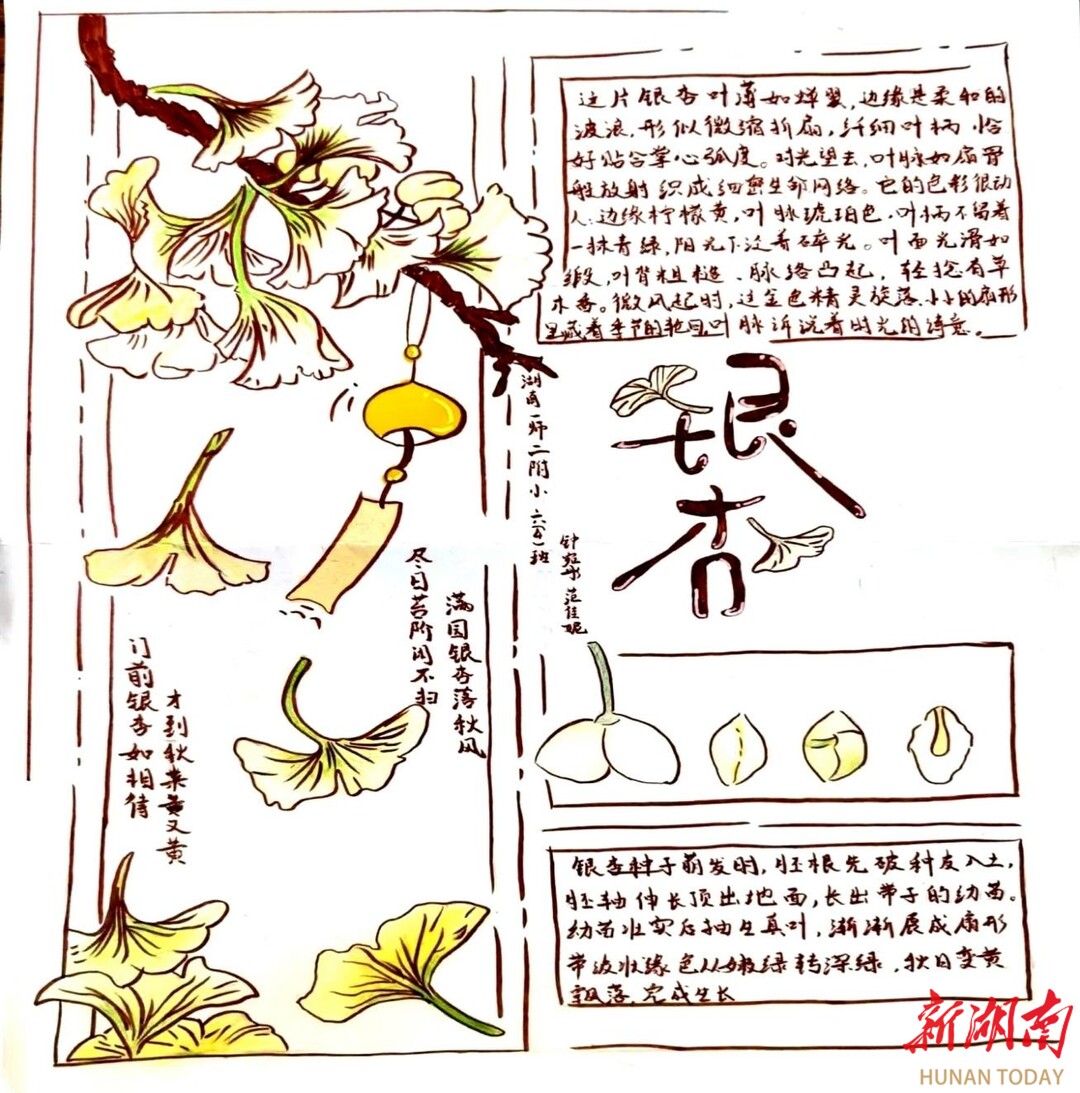 这片银杏叶薄如蝉翼,边缘是柔和的
波浪,形似微缩折扇,纤细叶柄恰
好贴合掌心弧度。对光望去,叶脉如扇骨
般放射织成细密生命网络。它的色彩很动
人:边缘柠檬黄,叶脉琥珀色,叶柄不留着
一抹青绿,阳光下泛着碎光。叶面光滑如
缎,叶背粗糙、脉络凸起,轻捻有草
木香。微风起时,这金色精灵旋落,小小的扇形
里藏着季节的轮回,叶脉诉说着时光的诗意。
银杏
湖南一师二附小
班
范佳妮
满园银杏落秋风
尽日苔阶闲不扫
门前银杏如相待
才到秋来黄又黄
银杏种子萌发时,胚根先破种皮入土,
胚轴伸长顶出地面,长出带子的幼苗。
幼苗壮实后抽生真叶,渐渐展成扇形
带波状缘色从嫩绿转深绿,秋日变黄
飘落,完成生长
新湖南
HUNAN TODAY